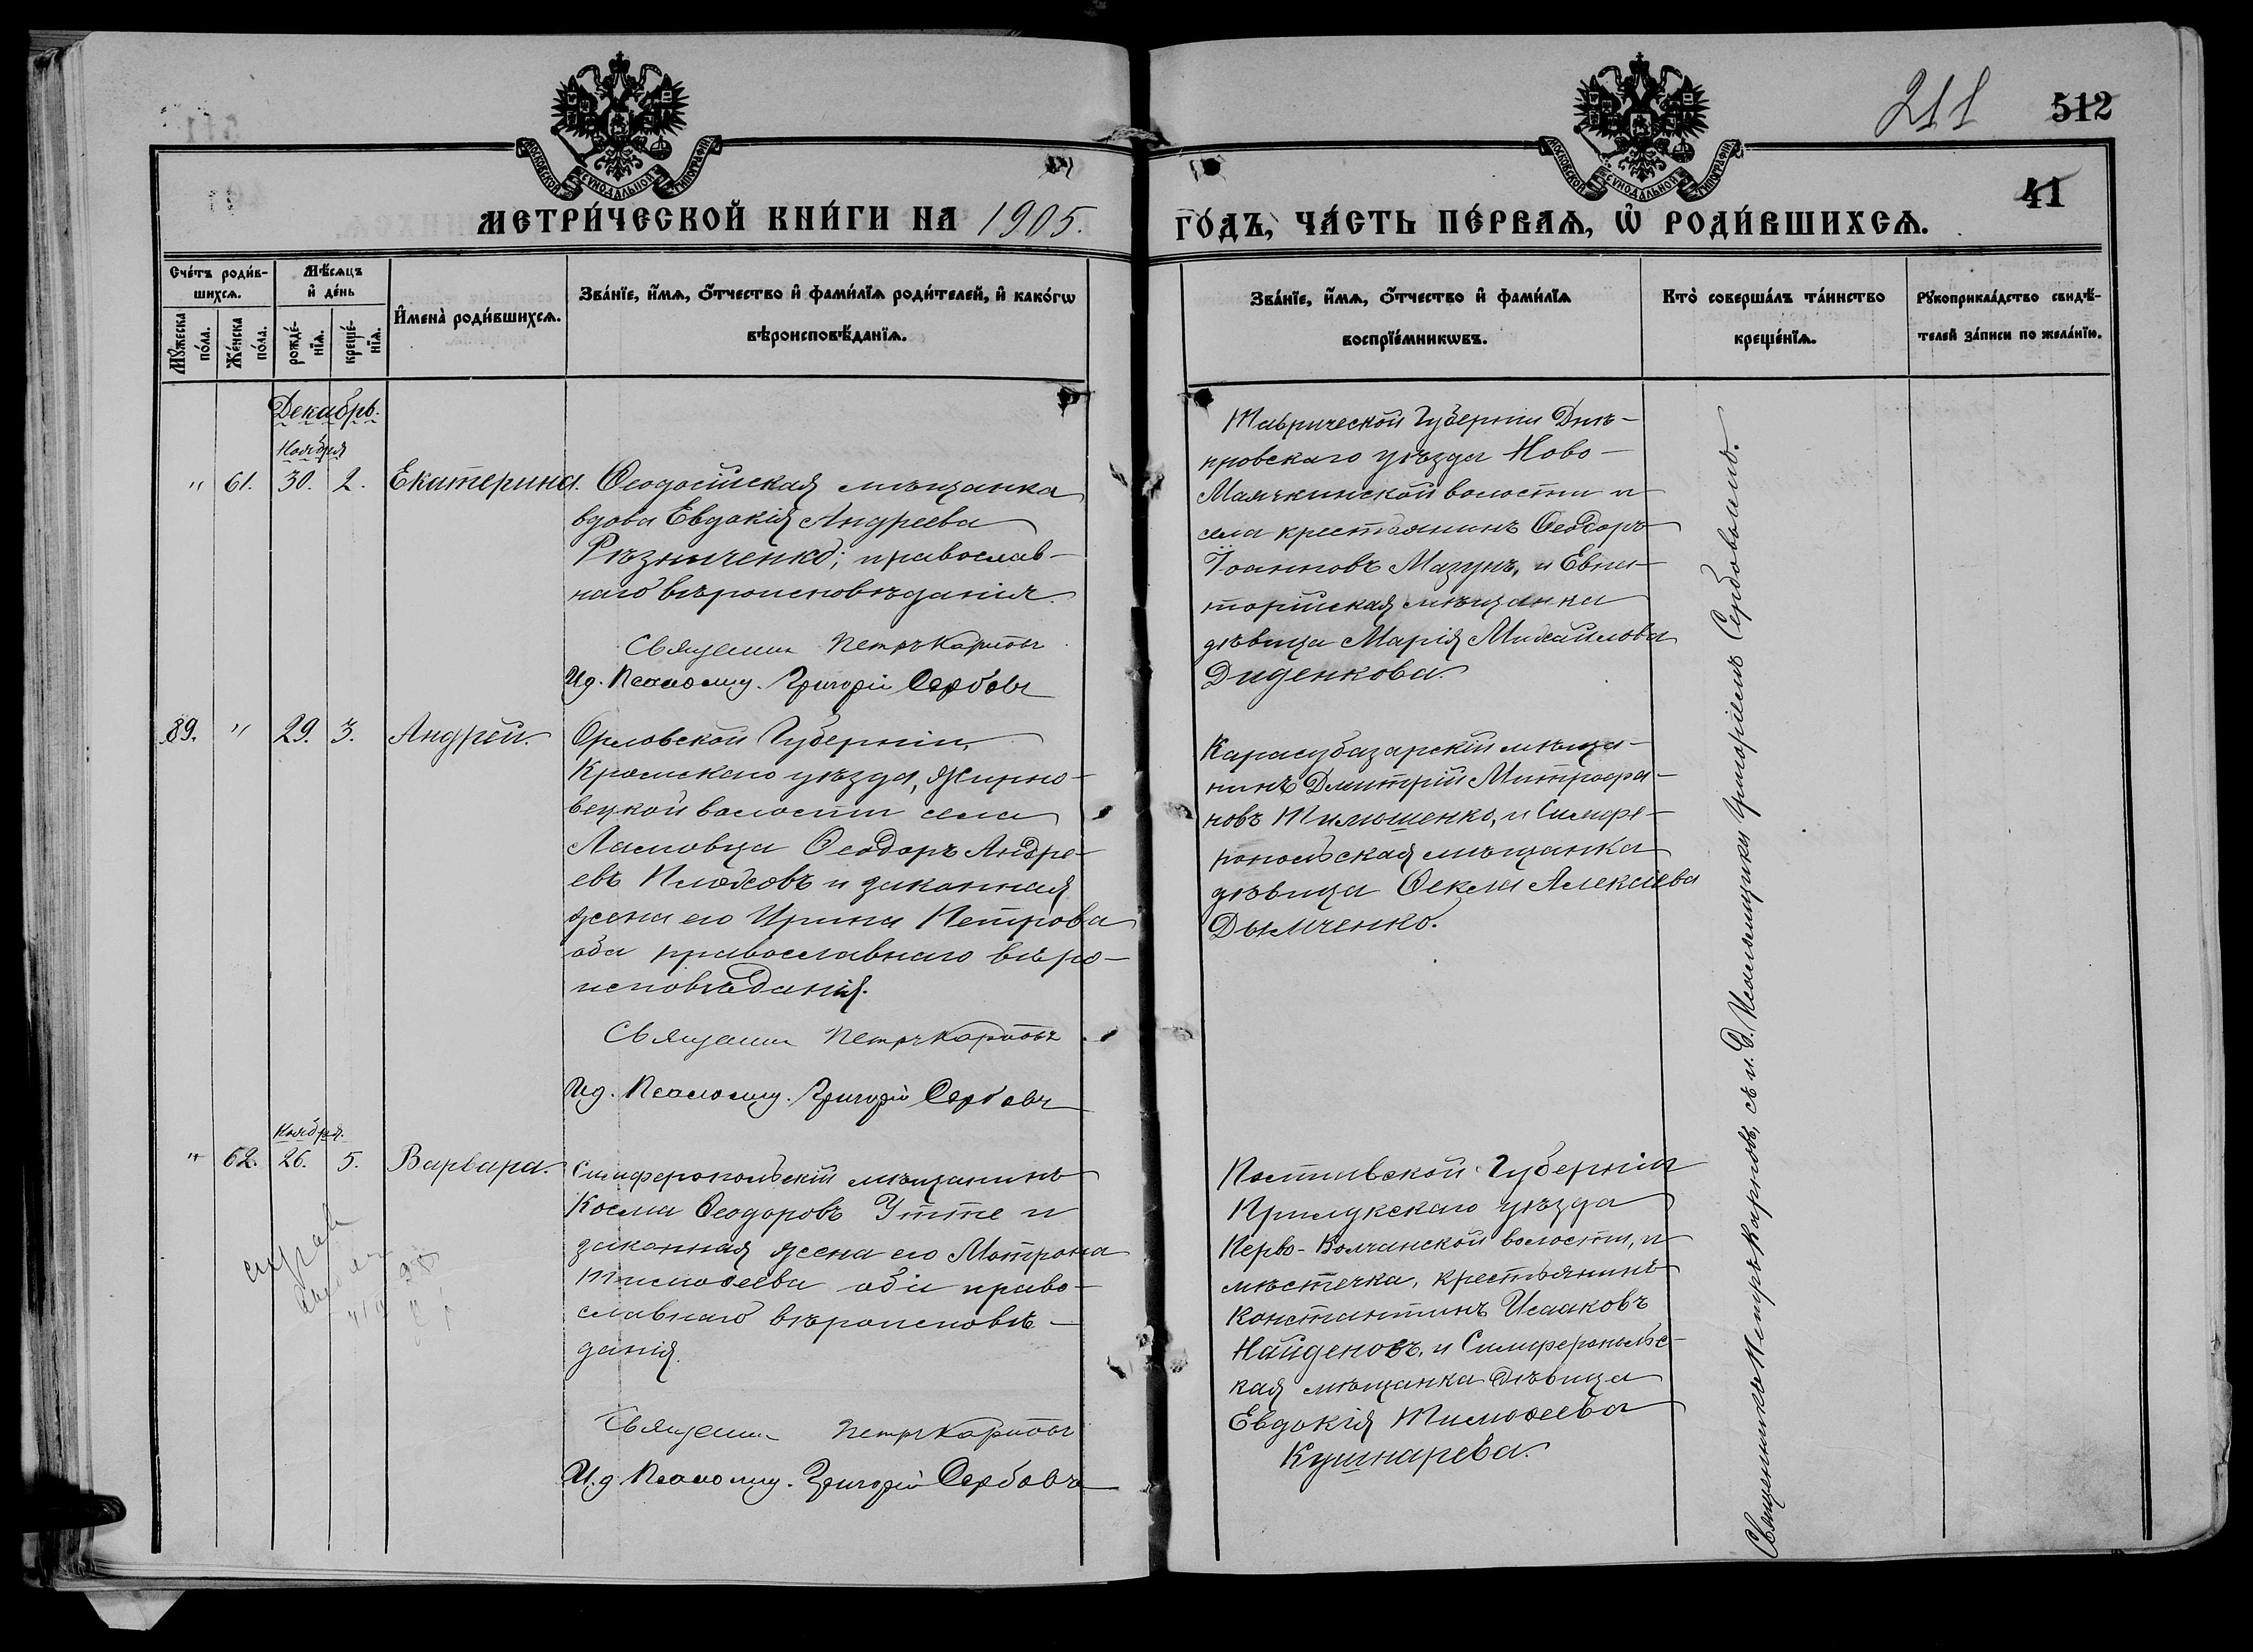 211 512
41
МОСКОВСКОЙ СѴНОДАЛЬНОЙ ТИПОГРАФІИ
МОСКОВСКОЙ СѴНОДАЛЬНОЙ ТИПОГРАФІИ
МЕТРИ́ЧЕСКОЙ КНИ́ГИ НА 1905.
ГО́ДЪ, ЧА́СТЬ ПЕ́РВАѦ, Ѡ҆ РОДИ́ВШИХСѦ.
Сче́тъ роди́в-
шихсѧ.
Мꙋ́жеска
по́ла.
Же́нска
по́ла.
Мѣ́сѧцъ
и҆ де́нь
рожде́-
нїѧ.
креще́-
нїѧ.
И҆мена̀ роди́вшихсѧ.
Зва́нїе, и҆́мѧ, ѻ҆́тчество и҆ фами́лїѧ роди́телей, и҆ како́гѡ
вѣроисповѣ́данїѧ.
Зва́нїе, и҆́мѧ, ѻ҆́тчество и҆ фами́лїѧ
воспрїе́мникѡвъ.
Кто̀ соверша́лъ та́инство
креще́нїѧ.
Рꙋкоприкла́дство свидѣ́-
телей за́писи по жела́нїю.
Декабрь.
Ноября
" 61. 30. 2. Екатерина.
Ѳеодосійская мѣщанка
вдова Евдокія Андреева
Рѣзниченко; православ-
наго вѣроисповѣданія.
Священник Петръ Карповъ
Ид. Псаломщ. Григорій Сербовъ
Таврической Губерніи Днѣ-
провскаго уѣзда Ново-
Маячкинской волости и
села крестьянинъ Ѳеодоръ
Іоанновъ Мазунъ, и Евпа-
торійская мѣщанка
дѣвица Марія Михайлова
Диденкова.
89. " 29. 3. Андрей.
Орловской Губерніи,
Кромскаго уѣзда, Жирно-
вецкой волости села
Ламовца Ѳеодоръ Андре-
евъ Плюховъ и законная
жена его Ирина Петрова
оба православнаго вѣро-
исповѣданія.
Священник Петръ Карповъ
Ид. Псаломщ. Григорій Сербовъ
Карасубазарскій мѣща-
нинъ Дмитрій Митрофа-
новъ Тимошенко, и Симфе-
ропольская мѣщанка
дѣвица Ѳекла Алексѣева
Дымченко.
Ноября.
" 62. 26. 5. Варвара.
Симферопольскій мѣщанинъ
Косма Ѳеодоровъ Утте и
законная жена его Матрона
Тимоѳеева оба право-
славнаго вѣроисповѣ-
данія.
Священник Петръ Карповъ
И.д. Псаломщ. Григорій Сербовъ
Полтавской Губерніи
Прилукскаго уѣзда
крестьянинъ
Константинъ Исааковъ
Найденовъ, и Симферопольс-
кая мѣщанка дѣвица
Евдокія Тимоѳеева
Кушнарева.
Священникъ Петръ Карповъ, съ и.д. Псаломщика Григоріемъ Сербовымъ.